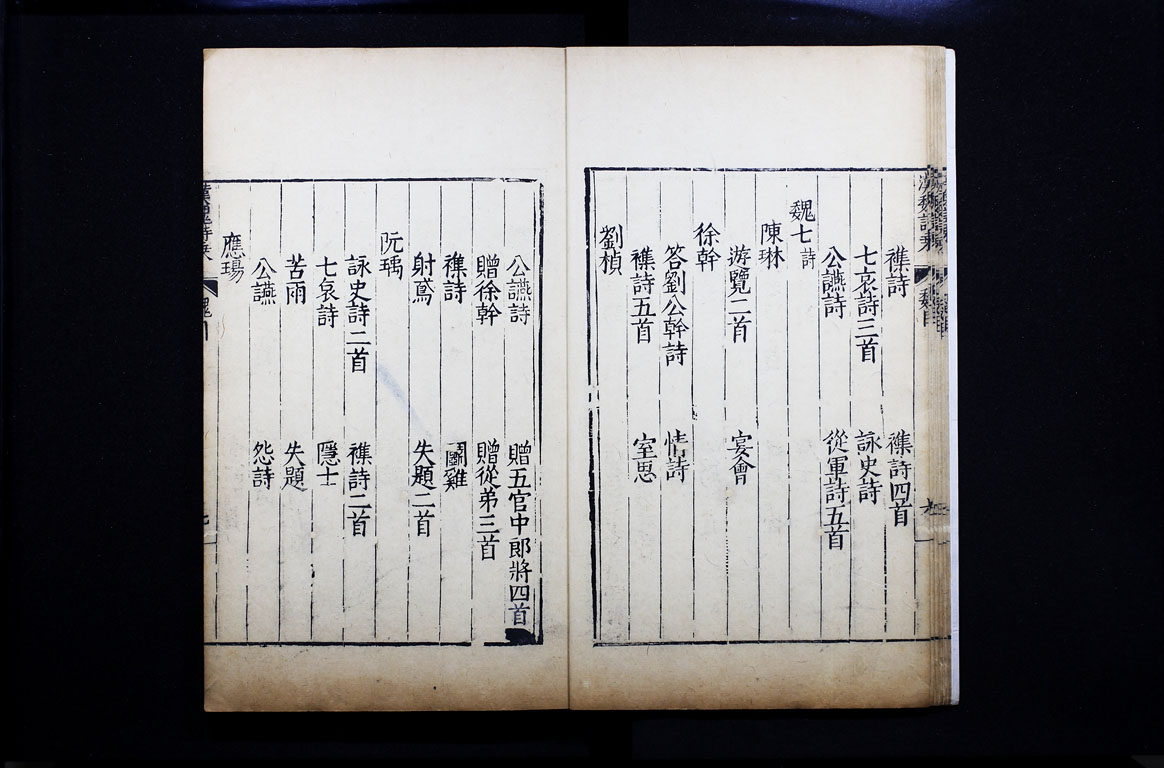 漢魏詩乘 魏目
襍詩 襍詩四首
七哀詩三首 詠史詩
公讌詩 從軍詩五首
魏七 詩
陳琳
游覽二首 宴會
徐幹
答劉公幹詩 情詩
襍詩五首 室思
劉楨
公讌詩 贈五官中郎將四首
贈徐幹 贈從弟三首
襍詩 鬭雞
射鳶 失題二首
阮瑀
詠史詩二首 襍詩二首
七哀詩 隱士
苦雨 失題
公讌 怨詩
應瑒